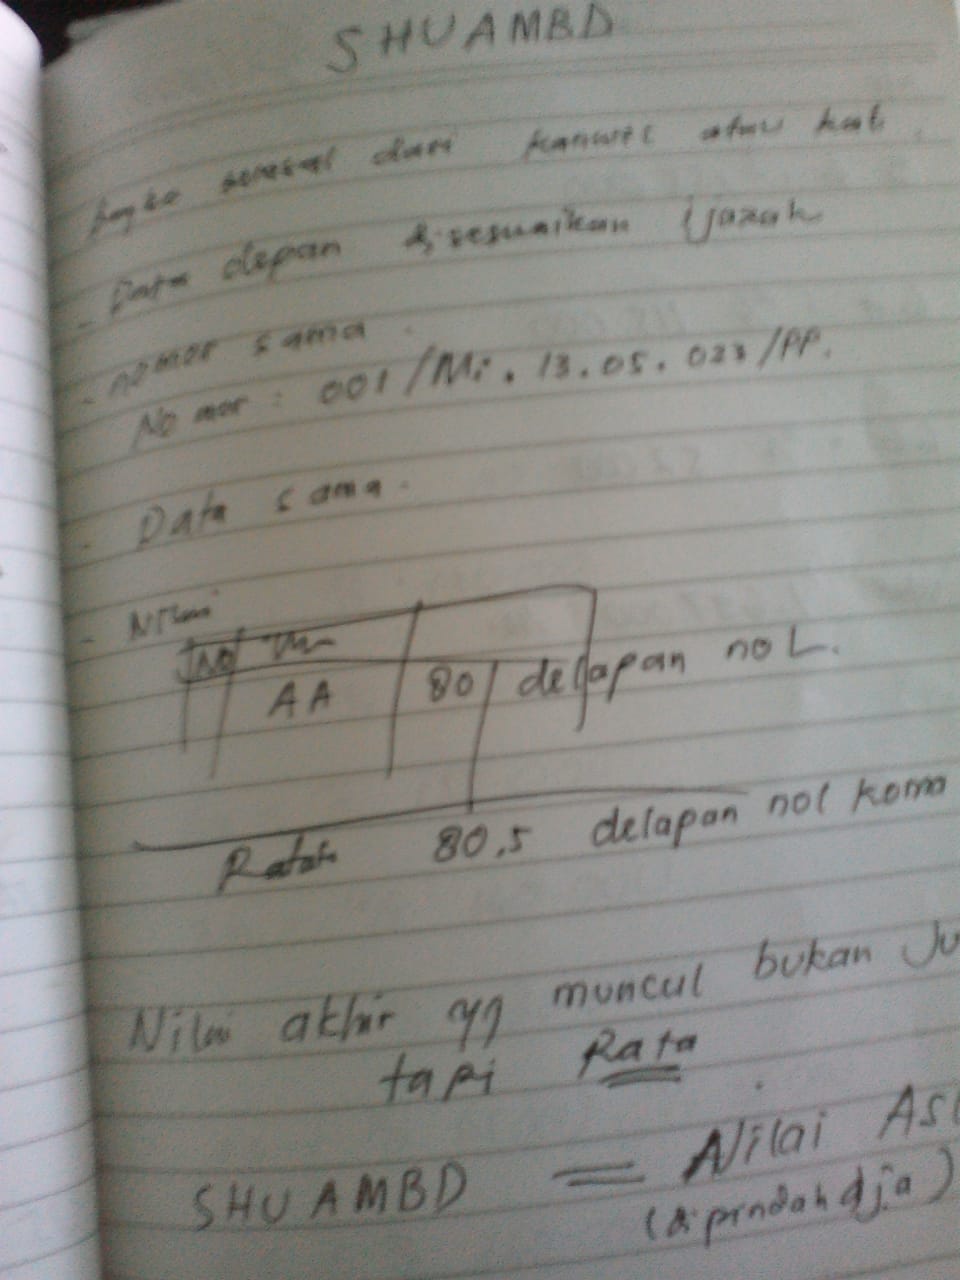 SHUAMBD
dari kanwil atau kab
- Data depan disesuaikan ijazah
- nomor sama.
Nomor : 001/Mi.13.05.023/PP.
- Data sama.
- Nilai
No
AA 80 delapan noL.
Rata 80,5 delapan nol koma
Nilai akhir yg muncul bukan Ju
tapi Rata
SHUAMBD = Nilai Asl
(dipindah dja)